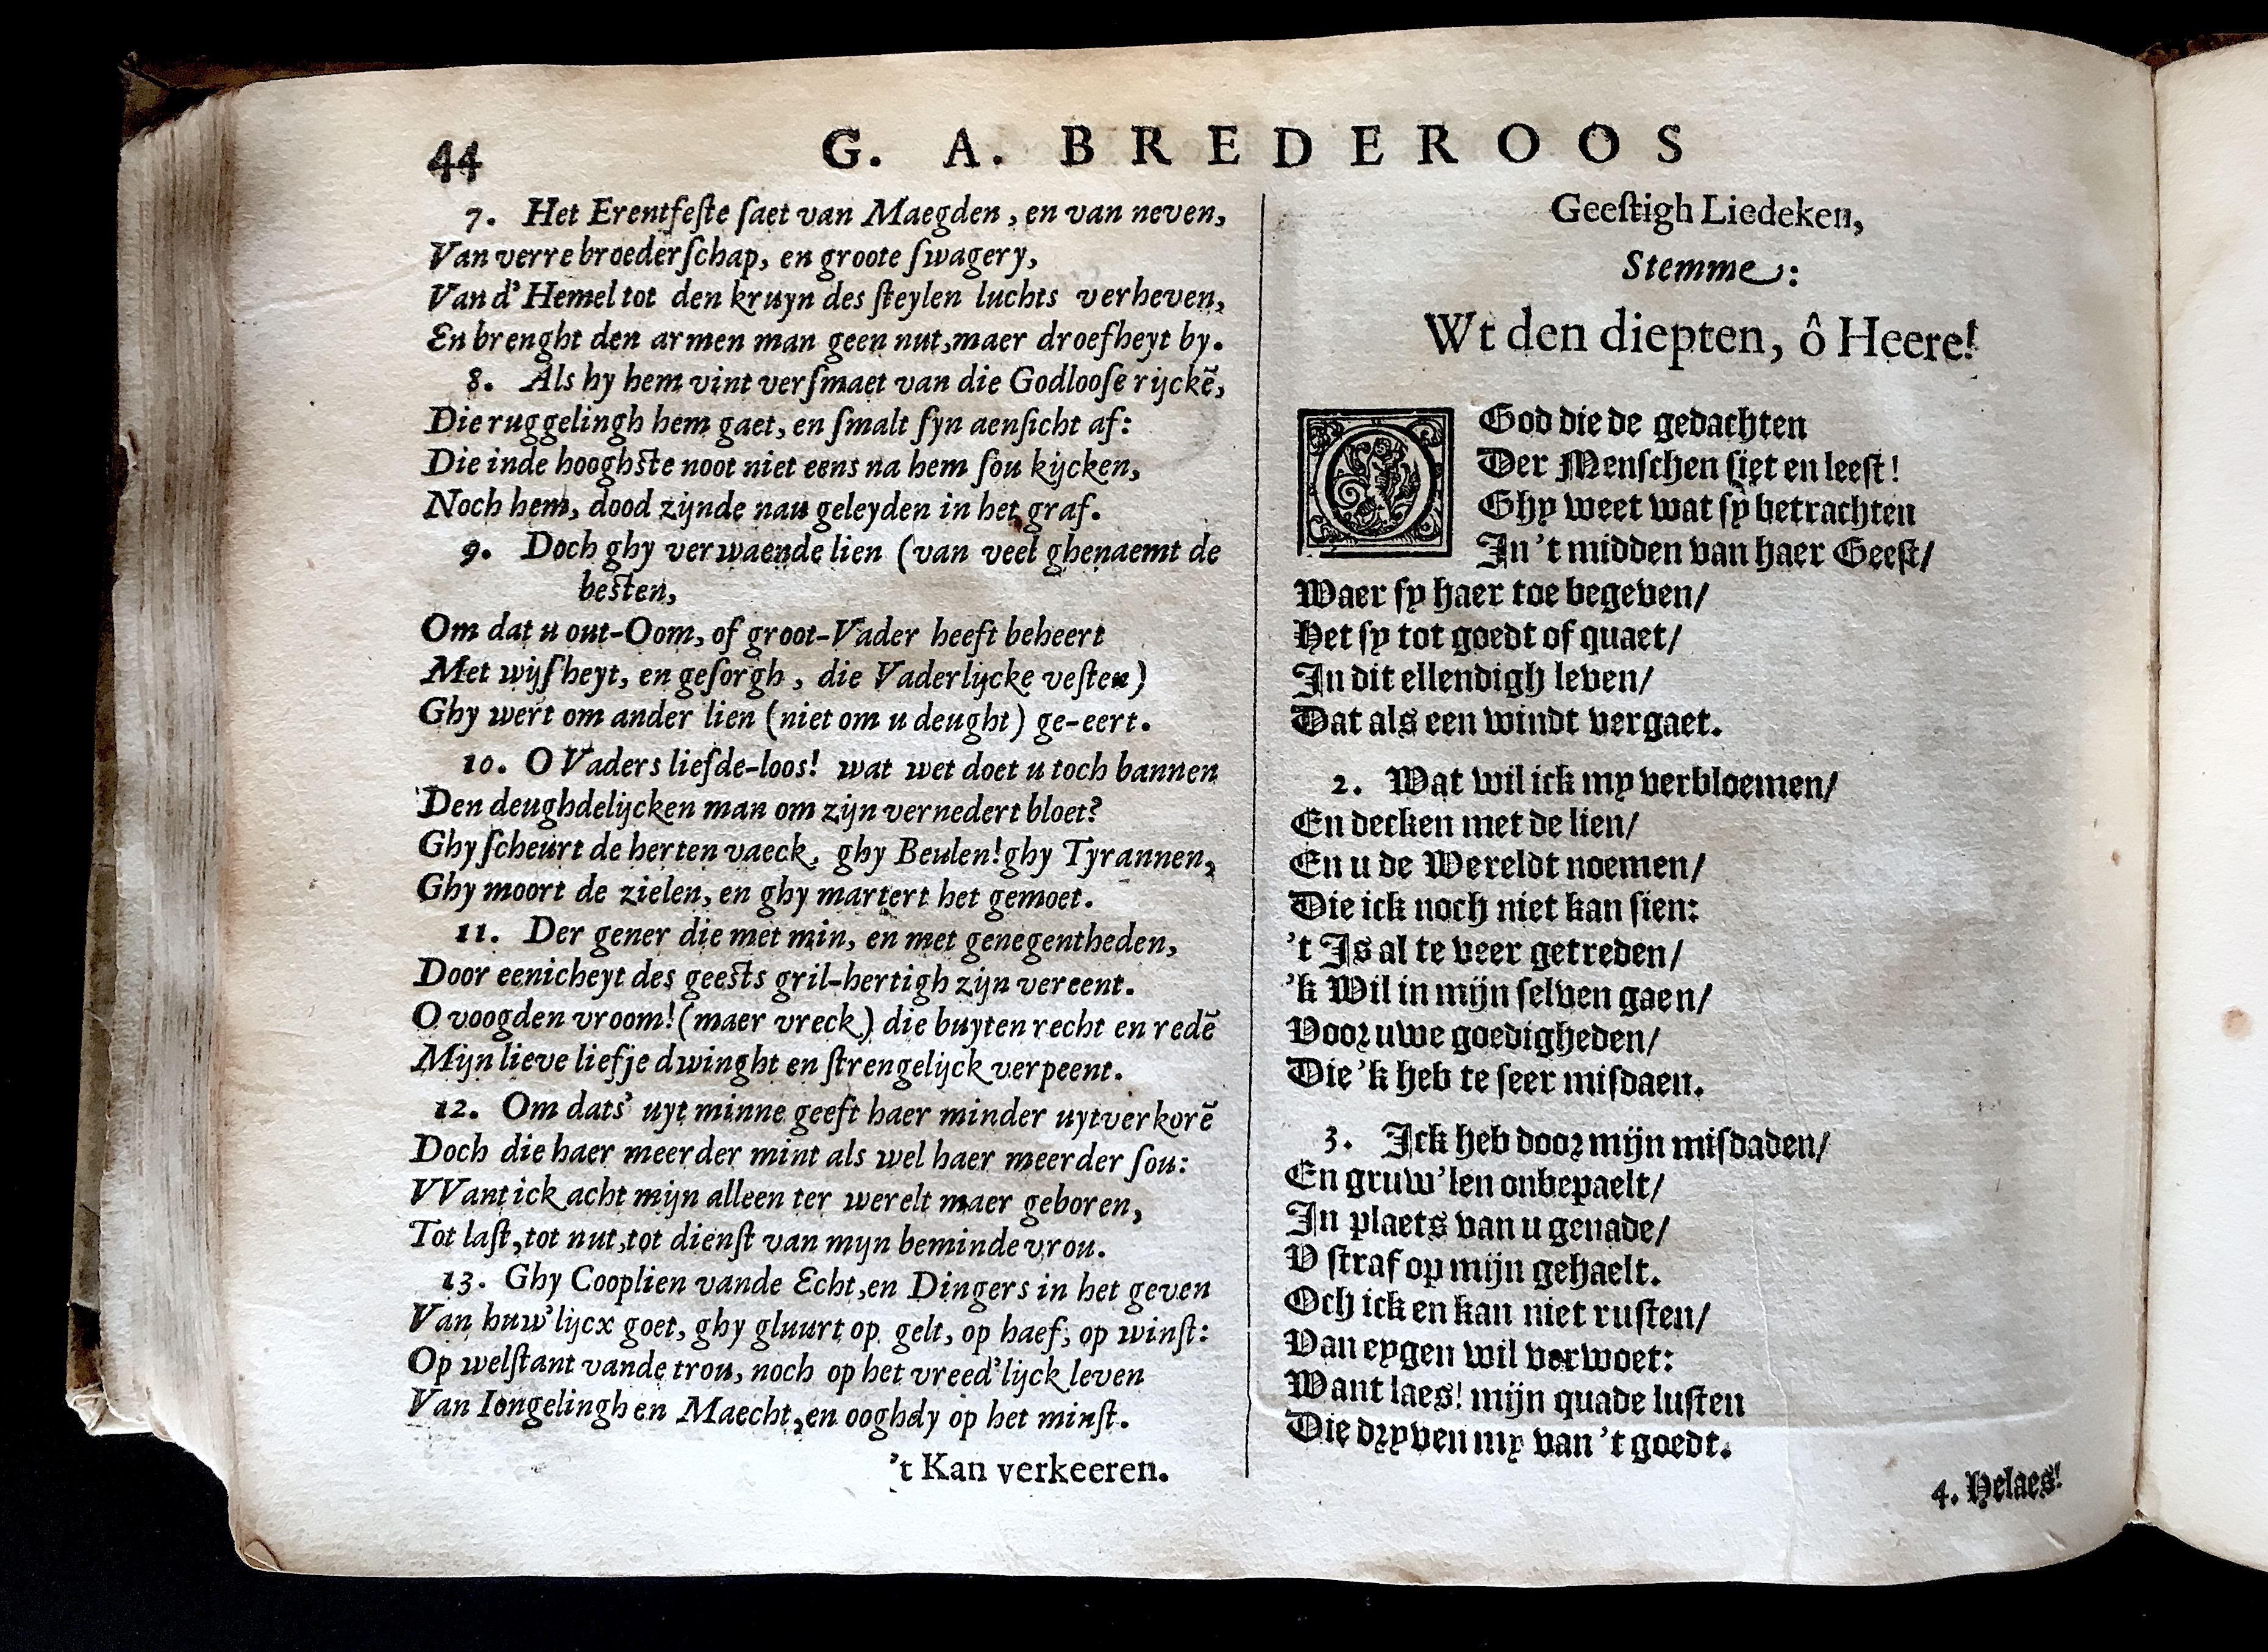 44
G. A. BREDEROOS
7. Het Erentfeſte ſaet van Maegden, en van neven,
Van verre broederſchap, en groote ſwagery,
Van d' Hemel tot den kruyn des ſteylen luchts verheven,
En brenght den armen man geen nut, maer droefheyt by.
8. Als hy hem vint verſmaet van die Godlooſe rijckē,
Die ruggelingh hem gaet, en ſmalt ſyn aenſicht af:
Die inde hooghſte noot niet eens na hem ſou kijcken,
Noch hem, dood zijnde nau geleyden in het graf.
9. Doch ghy verwaende lien (van veel ghenaemt de
beſten,
Om dat u out-Oom, of groot-Vader heeft beheert
Met wijſheyt, en geſorgh, die Vaderlijcke veſten)
Ghy wert om ander lien (niet om u deught) ge-eert.
10. O Vaders liefde-loos! wat wet doet u toch bannen
Den deughdelijcken man om zijn vernedert bloet?
Ghy ſcheurt de herten vaeck, ghy Beulen! ghy Tyrannen,
Ghy moort de zielen, en ghy martert het gemoet.
11. Der gener die met min, en met genegentheden,
Door eenicheyt des geeſts gril-hertigh zijn vereent.
O voogden vroom! (maer vreck) die buyten recht en redē
Mijn lieve liefje dwinght en ſtrengelijck verpeent.
12. Om dats' uyt minne geeft haer minder uytverkorē
Doch die haer meerder mint als wel haer meerder ſou:
VVant ick acht mijn alleen ter werelt maer geboren,
Tot laſt, tot nut, tot dienſt van mijn beminde vrou.
13. Ghy Cooplien vande Echt, en Dingers in het geven
Van huw'lijcx goet, ghy gluurt op gelt, op haef, op winſt:
Op welſtant vande trou, noch op het vreed'lijck leven
Van Iongelingh en Maecht, en ooghdy op het minſt.
't Kan verkeeren.
Geeſtigh Liedeken,
Stemme:
Wt den diepten, ô Heere!
O God die de gedachten
Der Menſchen ſiet en leeſt!
Ghy weet wat ſy betrachten
In 't midden van haer Geeſt/
Waer ſy haer toe begeven/
Het ſy tot goedt of quaet/
In dit ellendigh leven/
Dat als een windt vergaet.
2. Wat wil ick my verbloemen/
En decken met de lien/
En u de Wereldt noemen/
Die ick noch niet kan ſien:
't Is al te veer getreden/
'k Wil in mijn ſelven gaen/
Voor uwe goedigheden/
Die 'k heb te ſeer miſdaen.
3. Ick heb door mijn miſdaden/
En gruw'len onbepaelt/
In plaets van u genade/
V ſtraf op mijn gehaelt.
Och ick en kan niet ruſten/
Van eygen wil verwoet:
Want laes! mijn quade luſten
Die dryven my van 't goedt.
4. Helaes!